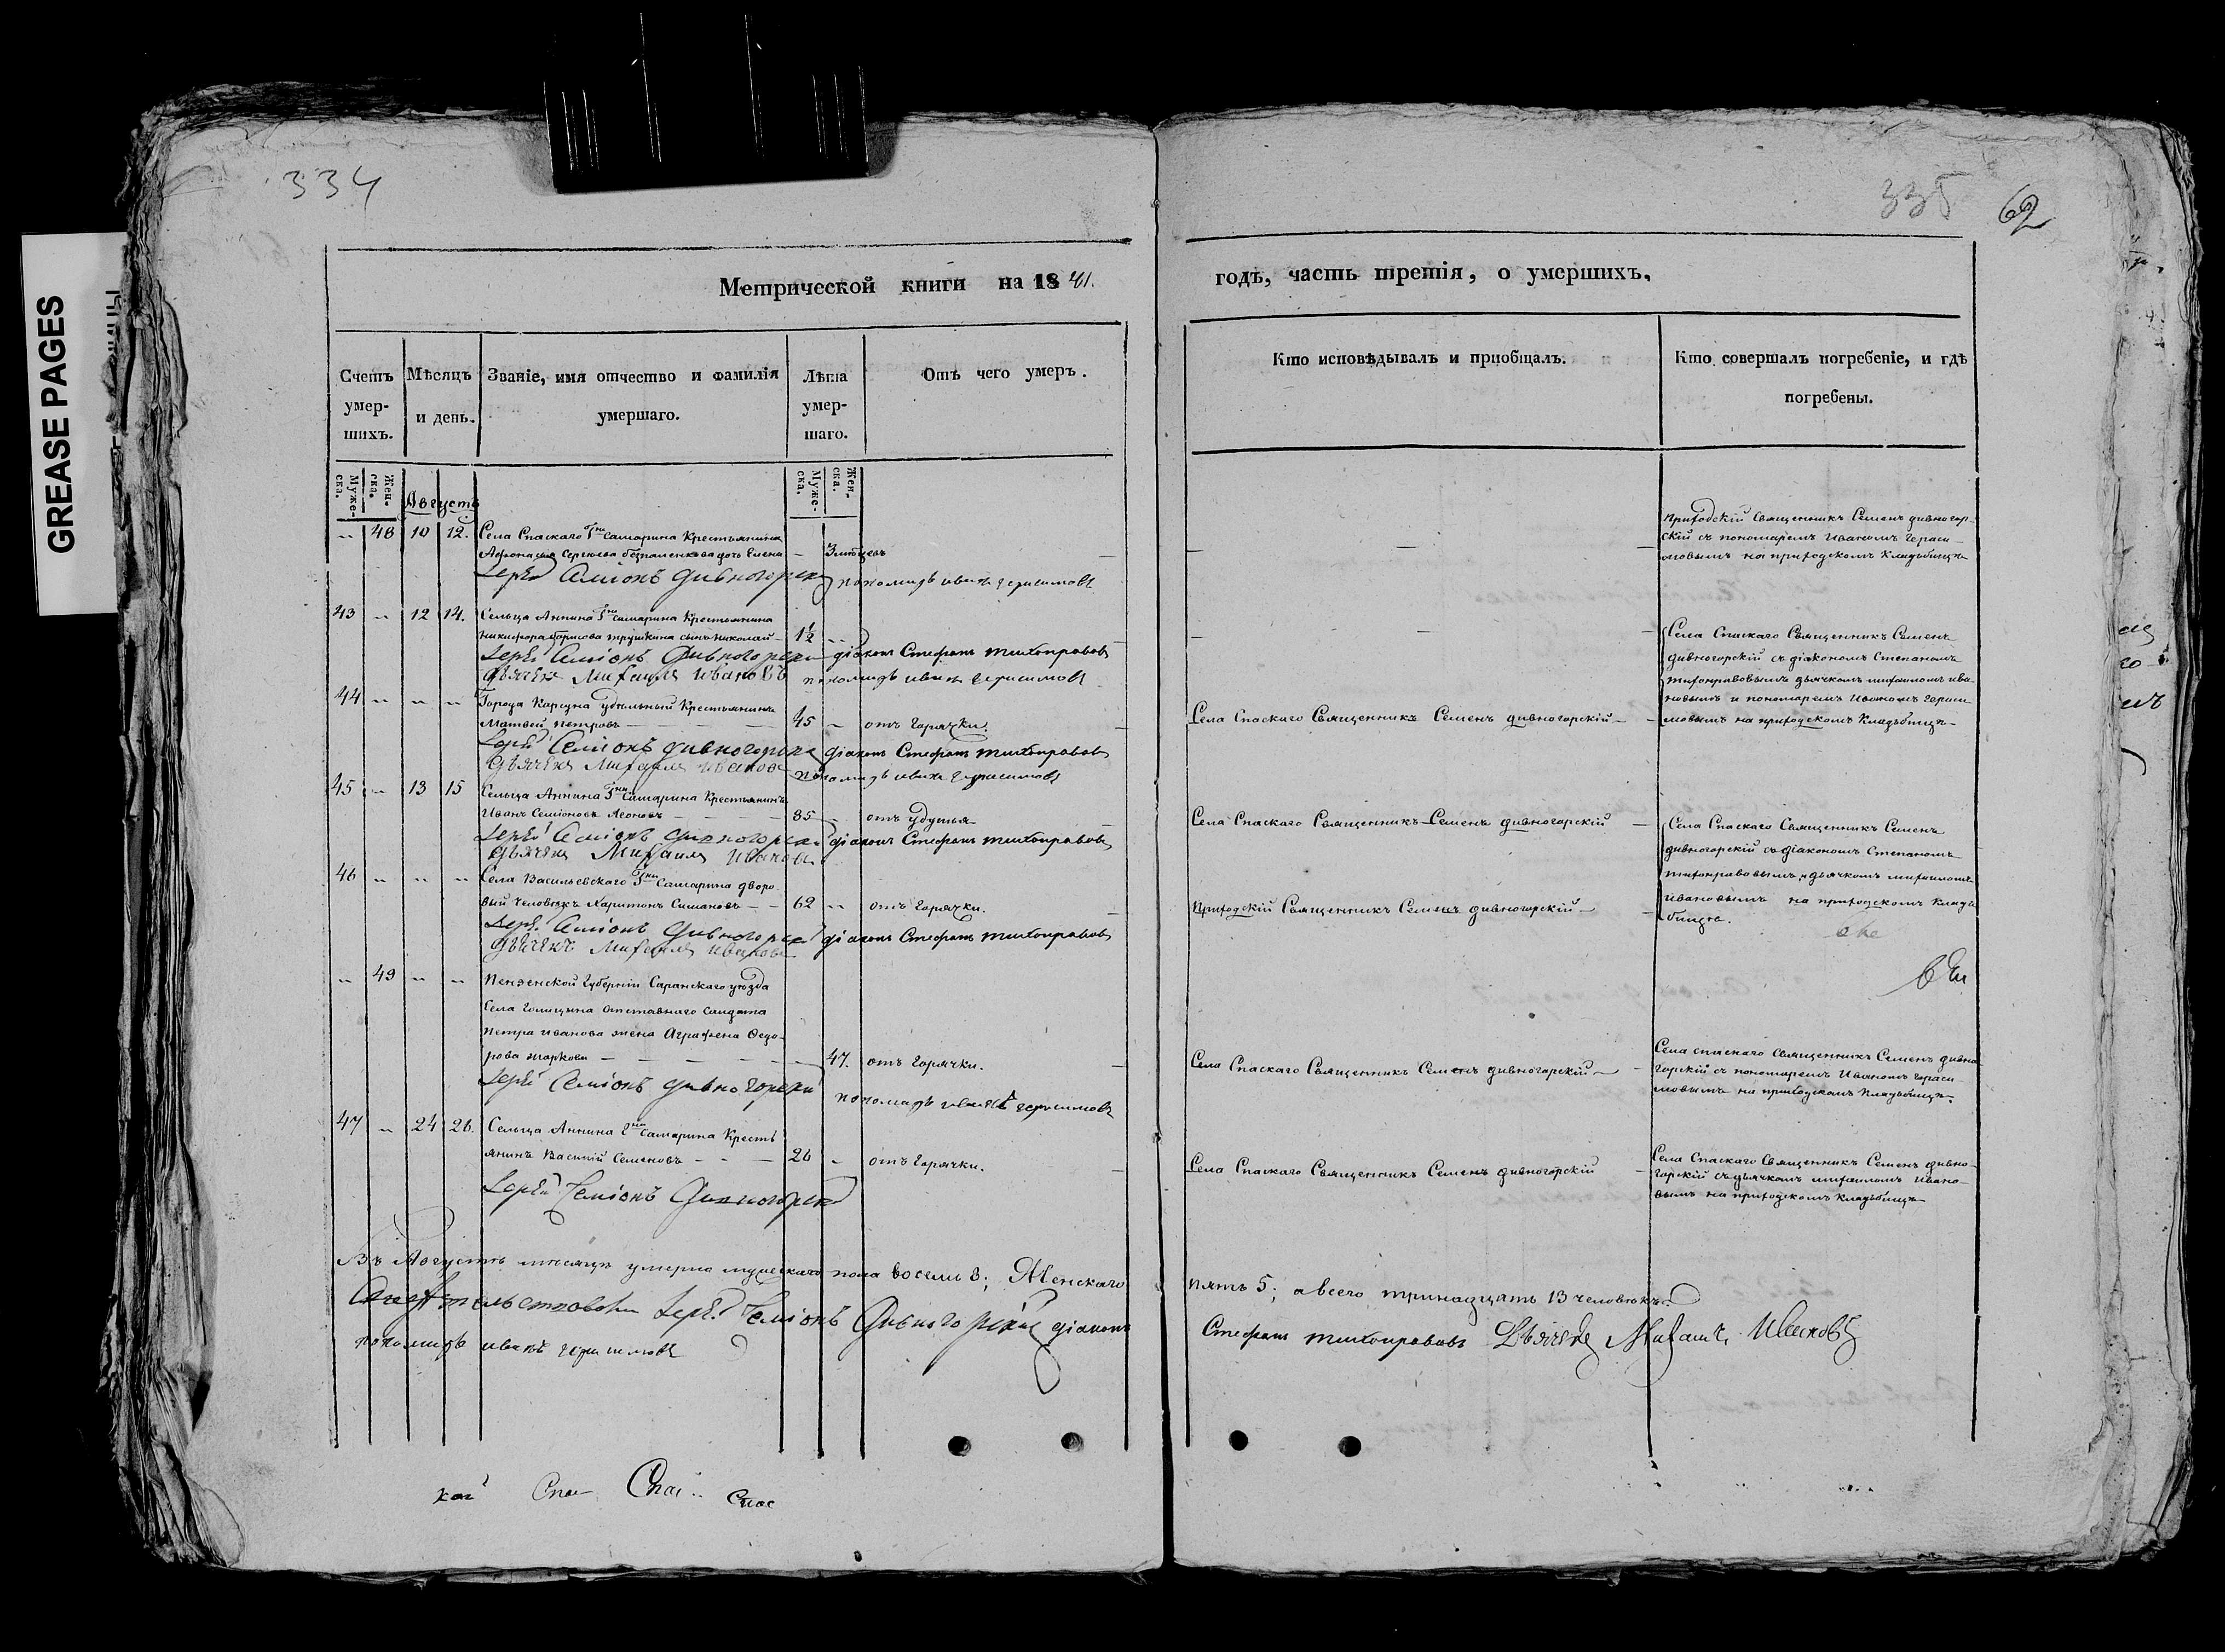 GREASE PAGES
334
335
62
Метрической книги на 1841.
годъ, часть третія, о умершихъ.
Счетъ умер-
шихъ.
Мѣсяцъ
и день.
Званіе, имя отчество и фамилія
умершаго.
Лѣта
умер-
шаго.
Отъ чего умеръ.
Кто исповѣдывалъ и пріобщалъ.
Кто совершалъ погребеніе, и гдѣ
погребены.
Муже-
ска.
Жен-
ска.
Муже-
ска.
Жен-
ска.
Августъ
48 10 12. Села Спаскаго Гна Самарина Крестьянина
Сергѣева дочь Елена
Приходскій Священникъ Семенъ дивногор-
скій съ пономаремъ Иваномъ Гераси-
мовымъ на приходскомъ Кладьбищѣ
Іерей Семіонъ Дивногорскій пономарь иванъ герасимовъ
43 12 14. Сельца Аннина Гна Самарина Крестьянина
Никифора Борисова трушкина сынъ Николай 1½
Села Спаскаго Священникъ Семенъ
дивногорскій съ діакономъ Степаномъ
тихонравовымъ дьячкомъ михаиломъ ива-
новымъ и пономаремъ Иваномъ Гераси-
мовымъ на приходскомъ Кладьбищѣ
Іерей Семіонъ Дивногорскій діаконъ Стефанъ тихонравовъ
дьячекъ Михаилъ Ивановъ пономарь иванъ герасимовъ
44 Города Карсуна удѣльный Крестьянинъ
Матвей петровъ 45 отъ Горячки.
Села Спаскаго Священникъ Семенъ дивногорскій
Іерей Семіонъ дивногорскій діаконъ Стефанъ тихонравовъ
дьячекъ Михаилъ ивановъ пономарь иванъ герасимовъ
45 13 15 Сельца Аннина Гна Самарина Крестьянинъ
Иванъ Семіоновъ Леоновъ 85 отъ удушья
Села Спаскаго Священникъ Семенъ дивногорскій
Села Спаскаго Священникъ Семенъ
дивногорскій съ діакономъ Степаномъ
тихонравовымъ, дьячкомъ михаиломъ
ивановымъ на приходскомъ Кладь-
бищѣ.
Іерей Семіонъ дивногорскій діаконъ Стефанъ тихонравовъ
дьячекъ Михаилъ Ивановъ
46 Села Васильевскаго Гна Самарина дворо-
вый Человѣкъ Харитонъ Симановъ 62 отъ Горячки.
Приходскій Священникъ Семенъ дивногорскій
Іерей Семіонъ Дивногорскій діаконъ Стефанъ тихонравовъ
дьячекъ Михаилъ ивановъ
49 Пензенской Губерніи Саранскаго уѣзда
Села Голицына отставнаго Салдата
Петра Иванова жена Аграфена Ѳедо-
рова 47. отъ Горячки.
Села Спаскаго Священникъ Семенъ дивногорскій
Села спаскаго Священникъ Семенъ дивно-
горскій съ пономаремъ Иваномъ Гераси-
мовымъ на приходскомъ Кладьбищѣ.
Іерей Семіонъ дивногорскій
пономарь иванъ герасимовъ
47 24 26. Сельца Аннина Гна Самарина Кресть-
янинъ Василій Семеновъ 26 отъ Горячки.
Села Спаскаго Священникъ Семенъ дивногорскій
Села Спаскаго Священникъ Семенъ дивно-
горскій съ дьячкомъ михаиломъ Ивано-
вымъ на приходскомъ Кладьбищѣ
Іерей Семіонъ Дивногорскій
Въ Августѣ мѣсяцѣ умерло мужескаго пола восемь 8; Женскаго пять 5; а всего тринадцать 13 человѣкъ.
Свидѣтельствовали Іерей Семіонъ Дивногорскій діаконъ Стефанъ тихонравовъ Дьячекъ Михаилъ Ивановъ
пономарь иванъ герасимовъ
Спас